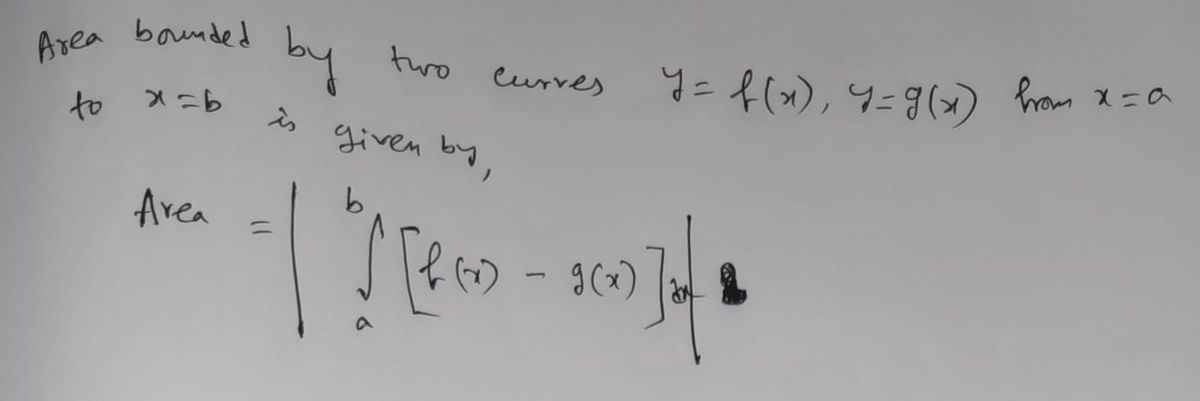 Area bounded by two curves y = f(x), y = g(x) from x = a
to x = b is given by,
Area = | ∫_a^b [f(x) - g(x)] dx |